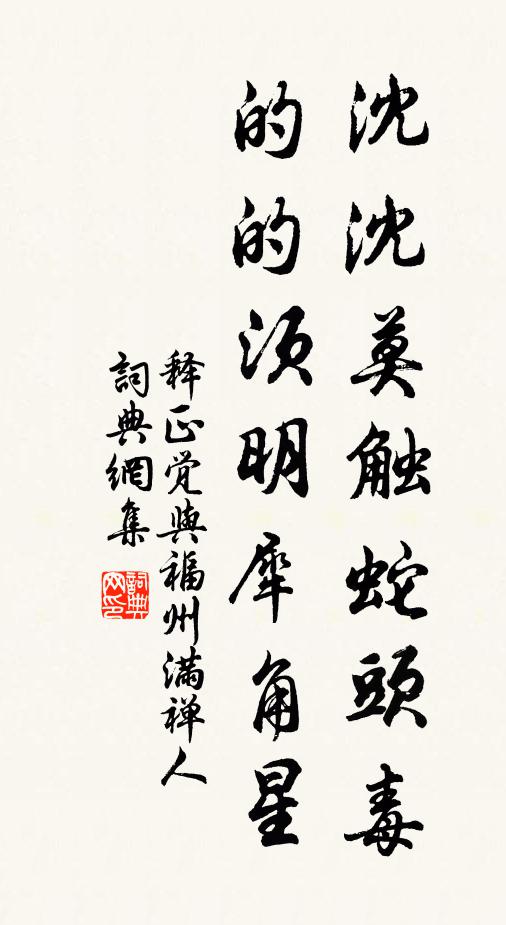 沈沈莫触蛇頭毒
的的须明犀角星
释正觉與福州满禅人
詞典網集
詞典网印